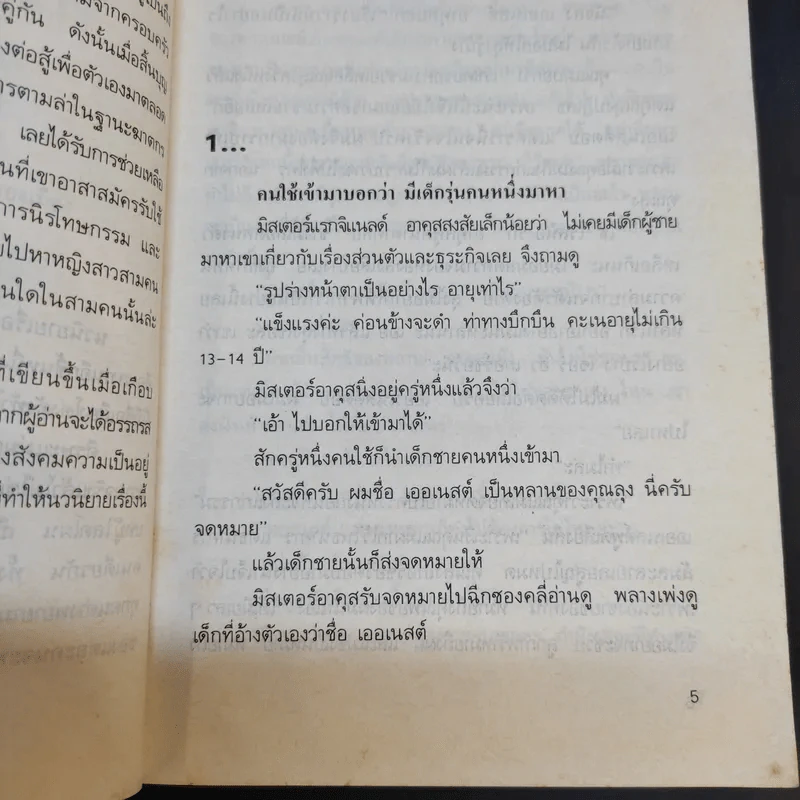 คู่กัน ดังนั้นเมื่อสิ้นบุญ
งต่อสู้เพื่อตัวเองมาตลอด
ารตามล่าในฐานะฆาตกร
เลยได้รับการช่วยเหลือ
นที่เขาอาสาสมัครรับใช้
การนิรโทษกรรม และ
ยไปหาหญิงสาวสามคน
นใดในสามคนนั้นล่ะ
ที่เขียนขึ้นเมื่อเกือบ
ากผู้อ่านจะได้อรรถรส
งสังคมความเป็นอยู่
ที่ทำให้นวนิยายเรื่องนี้
1...
คนใช้เข้ามาบอกว่า มีเด็กรุ่นคนหนึ่งมาหา
มิสเตอร์แรกจิแนลด์ อาคุสสงสัยเล็กน้อยว่า ไม่เคยมีเด็กผู้ชาย
มาหาเขาเกี่ยวกับเรื่องส่วนตัวและธุระกิจเลย จึงถามดู
“รูปร่างหน้าตาเป็นอย่างไร อายุเท่าไร”
“แข็งแรงค่ะ ค่อนข้างจะดำ ท่าทางบึกบึน คะเนอายุไม่เกิน
13-14 ปี”
มิสเตอร์อาคุสนิ่งอยู่ครู่หนึ่งแล้วจึงว่า
“เอ้า ไปบอกให้เข้ามาได้”
สักครู่หนึ่งคนใช้ก็นำเด็กชายคนหนึ่งเข้ามา
“สวัสดีครับ ผมชื่อ เออเนสต์ เป็นหลานของคุณลุง นี่ครับ
จดหมาย”
แล้วเด็กชายนั้นก็ส่งจดหมายให้
มิสเตอร์อาคุสรับจดหมายไปฉีกซองคลี่อ่านดู พลางเพ่งดู
เด็กที่อ้างตัวเองว่าชื่อ เออเนสต์
5